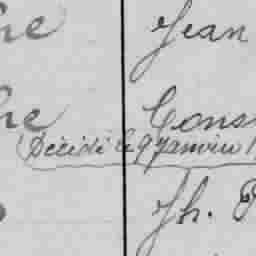 he Jean
he Cons
Décédé le 9 Janvier 1
Jh. P